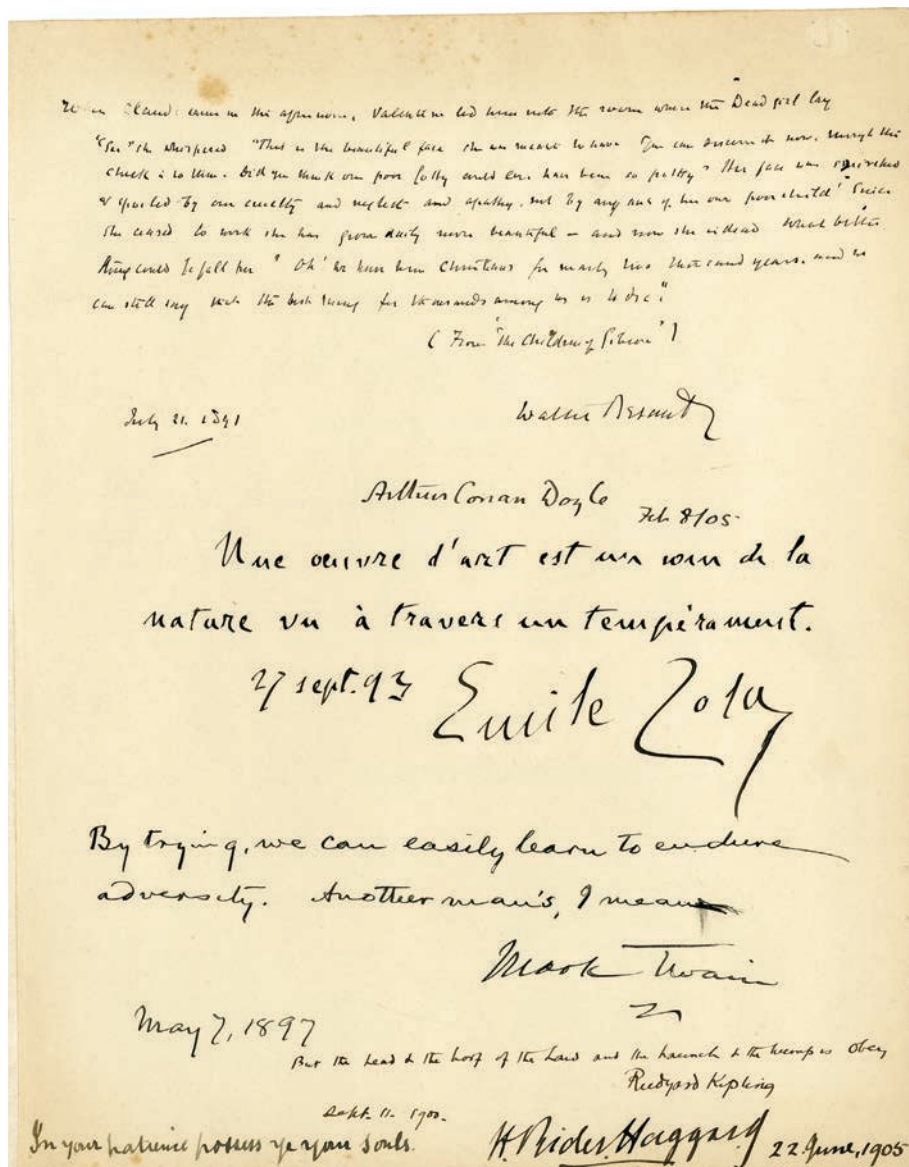 When Claude came in the afternoon, Valentine led him into the room where the Dead girl lay
"See" she whispered "This is the beautiful face she was meant to have You can discern it now, though the
cheek is so thin. Did you think our poor Lotty could ever have been so pretty? Her face was
& spoiled by our cruelty and neglect and apathy, not by any act of her own poor child! Since
she ceased to work she has grown daily more beautiful – and now she is dead What better
thing could befall her" Oh! we have been Christians for nearly two thousand years. and we
can still say that the best thing for thousands among us is to die."
(From "The Children of Gibeon")
July 21. 1891
Walter Besant
Arthur Conan Doyle
Feb 8/05
Une oeuvre d'art est un coin de la
nature vu à travers un tempérament.
27 sept. 93 Emile Zola
By trying, we can easily learn to endure
adversity. Another man's, I mean
Mark Twain
May 7, 1897
But the head & the hoof of the Law and the haunch & the hump is Obey
Rudyard Kipling
Sept. 11. 1900.
In your patience possess ye your souls. H. Rider Haggard 22 June, 1905